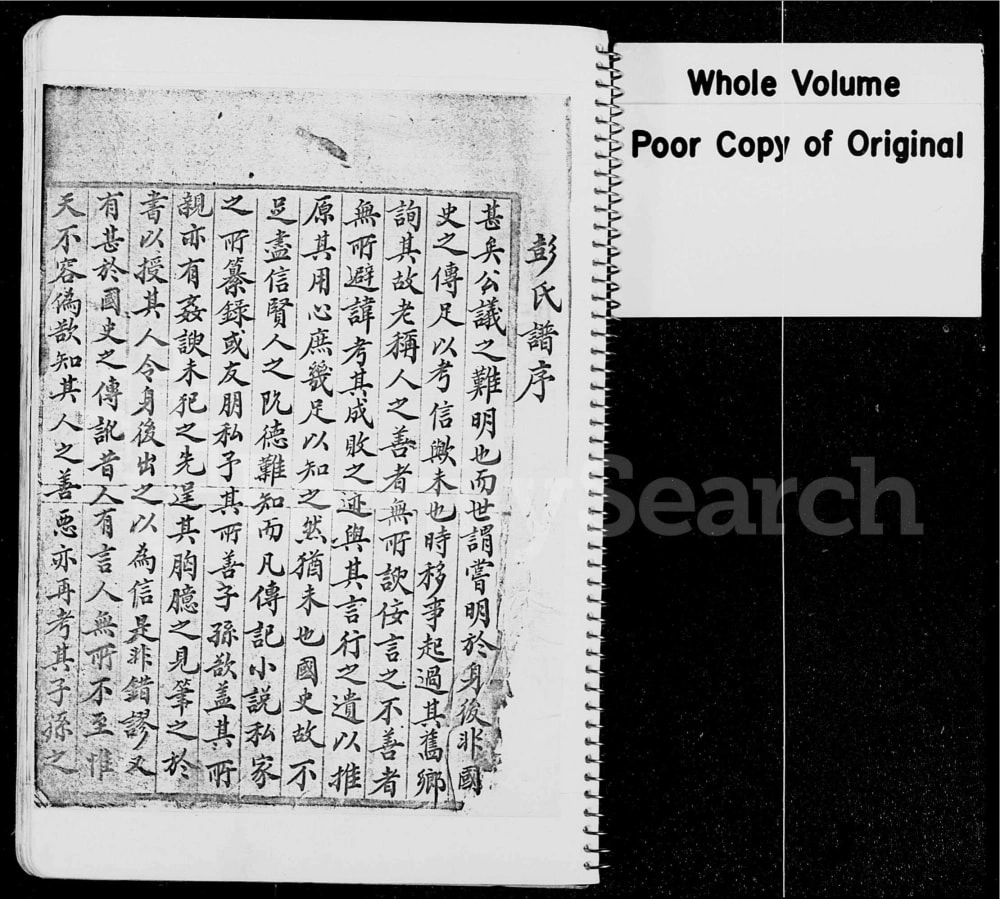 彭氏譜序
甚矣公議之難明也而世謂嘗明於身後非國
史之傳足以考信歟未也時移事起過其舊鄉
詢其故老稱人之善者無所諛佞言之不善者
無所避諱考其成敗之迹與其言行之遺以推
原其用心庶幾足以知之然猶未也國史故不
足盡信賢人之阨德難知而凡傳記小説私家
之所纂録或友朋私予其所善子孫欲盖其所
親亦有姦諛未死之先逞其胸臆之見筆之於
書以授其人令身後出之以為信是非錯謬又
有甚於國史之傳訛昔人有言人無所不至惟
天不容偽欲知其人之善惡亦再考其子孫之
Whole Volume
Poor Copy of Original
Search